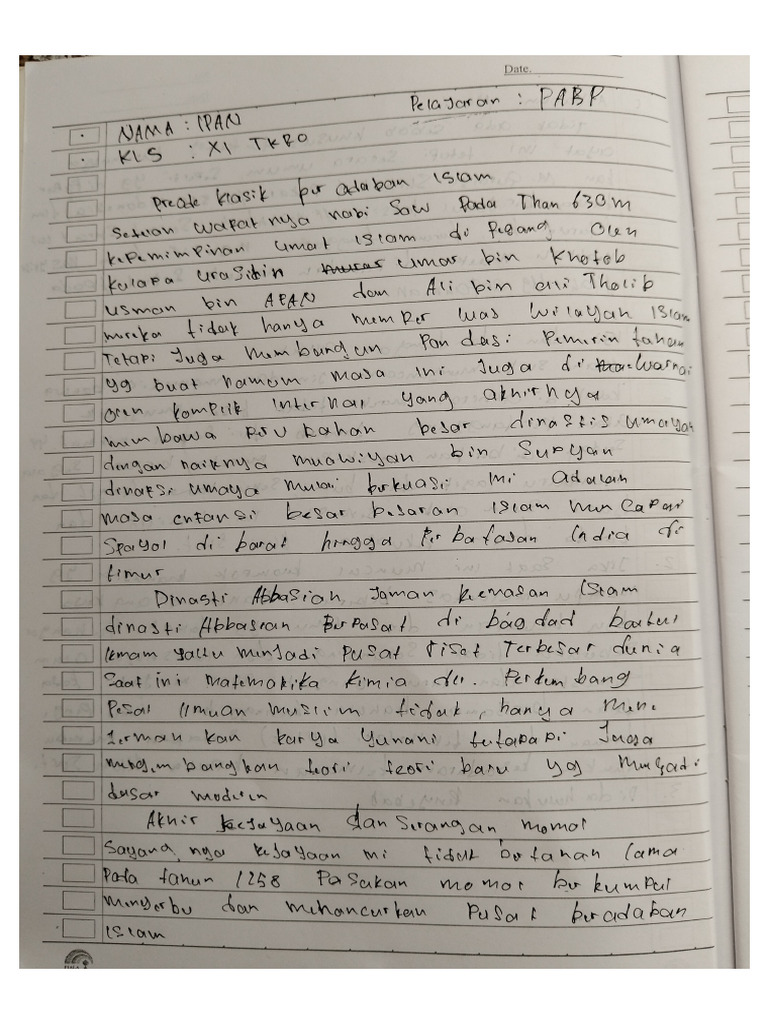 Date.
Pelajaran : PABP
NAMA : IPAN
KLS : XI TKRO
Preode klasik per adaban Islam
Setelah wafat nya nabi Saw Pada Than 630 m
kepemimpinan umat Islam di Pegang Oleh
umar bin Khotob
usman bin APAN dan Ali bin abi Tholib
mereka tidak hanya memper luas wilayah Islam
Tetapi Juga membangun Pon dasi Pemerin tahan
yg buat namun masa ini Juga di warnai
Oleh komplik internal yang akhirnya
membawa besar dinastis umayah
dengan naiknya muawiyah bin Supyan
dinasti umaya mulai berkuasi ini adalah
masa entansi besar besaran Islam mencapai
Spayol di barat hingga Per batasan India di
timur
Dinasti Abbasiah Jaman keemasan Islam
dinasti Abbasiah Berpasat di bagdad baitul
ikmam yaitu menjadi Pusat riset Terbesar dunia
Saat ini matematika kimia dll. Perkembang
Pesat Ilmuan muslim tidak, hanya mene
Jerman kan karya Yunani tetapapi Juga
mengem bangkan teori teori baru yg menjadi
dasar modern
Akhir kejayaan dan Serangan momol
Sayang nya kejayaan ini tidak bertahan lama
Pada tahun 1258 Pasukan momol berkumpul
menyerbu dan mehancurkan Pusat beradaban
Islam